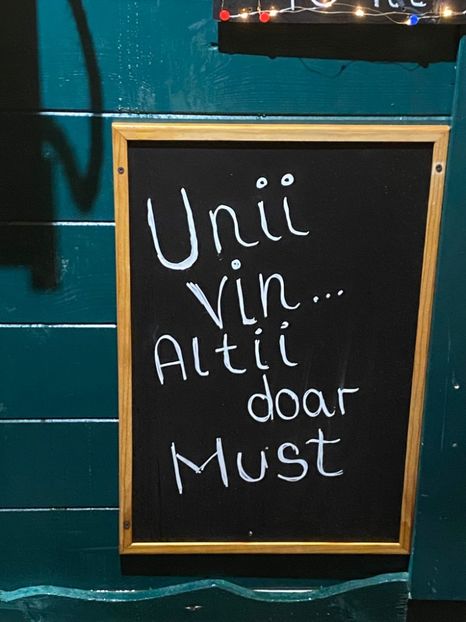 Unii
vin...
Altii
doar
Must